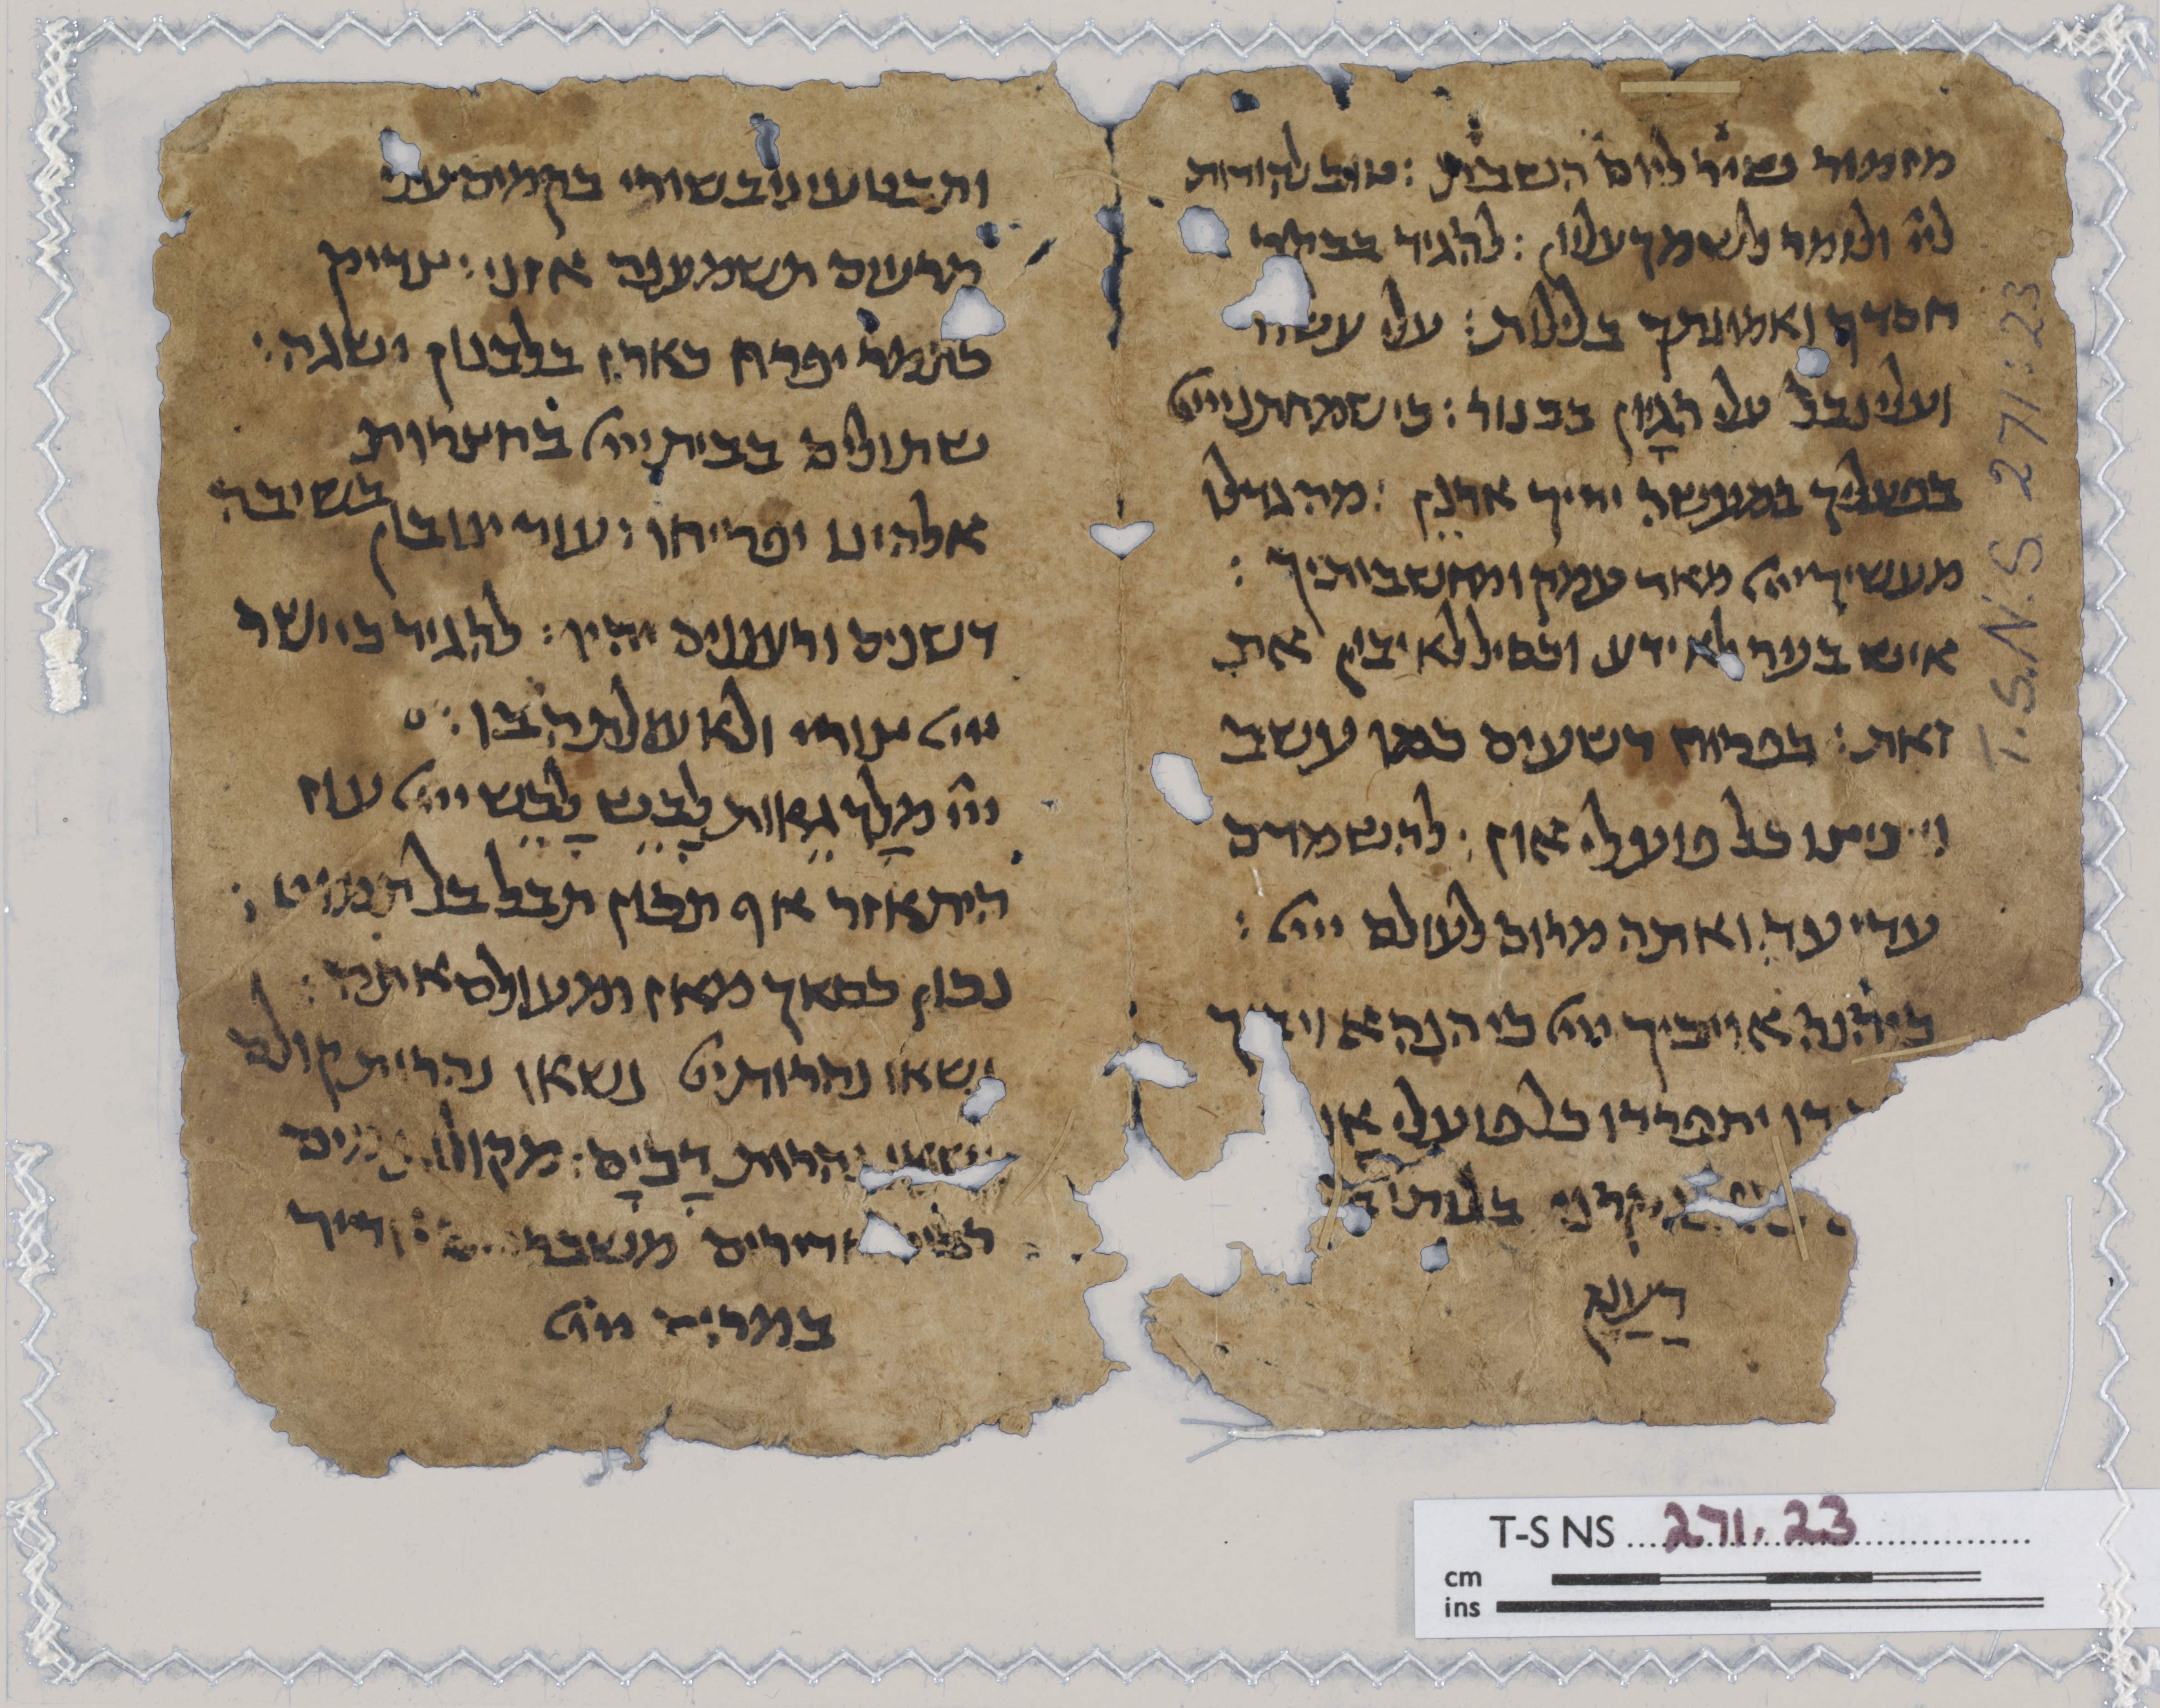 מזמור שיר ליום השבת : טוב להודות
לײ ולזמר לשמך עליון : להגיד בבקר
חסדך ואמונתך בלילות : עלי עשור
ועלי נבל עלי הגיון בכנור : כי שמחתני ייי
בפעליך במעשה ידיך ארנן : מה גדלו
מעשיך ייי מאד עמקו מחשבותיך :
איש בער לא ידע וכסיל לא יבין את
זאת : בפרוח רשעים כמו עשב
ויציצו כל פועלי און : להשמדם
עדי עד ואתה מרום לעולם ייי :
כי הנה אויביך ייי כי הנה אויביך
יתפרדו כל פועלי און
קרני בלותי
רענן
ותבט עיני בשורי בקמים עלי
מרעים תשמענה אזני : צדיק
כתמר יפרח כארז בלבנון ישגה :
שתולים בבית ייי בחצרות
אלהינו יפריחו : עוד ינובון בשיבה
דשנים ורעננים יהיו : להגיד כי ישר
ייי צורי ולא עולתה בו :
ייי מלך גאות לבש לבש ייי עוז
היתאזר אף תכון תבל בל תמוט :
נכון כסאך מאז ומעולם אתה :
נשאו נהרות ייי נשאו נהרות קולם
ישאו נהרות דכים : מקולות מים
רבים אדירים משברי אדיר
במרום ייי
T.S.N.S 271:23
T-S NS 271.23
cm
ins